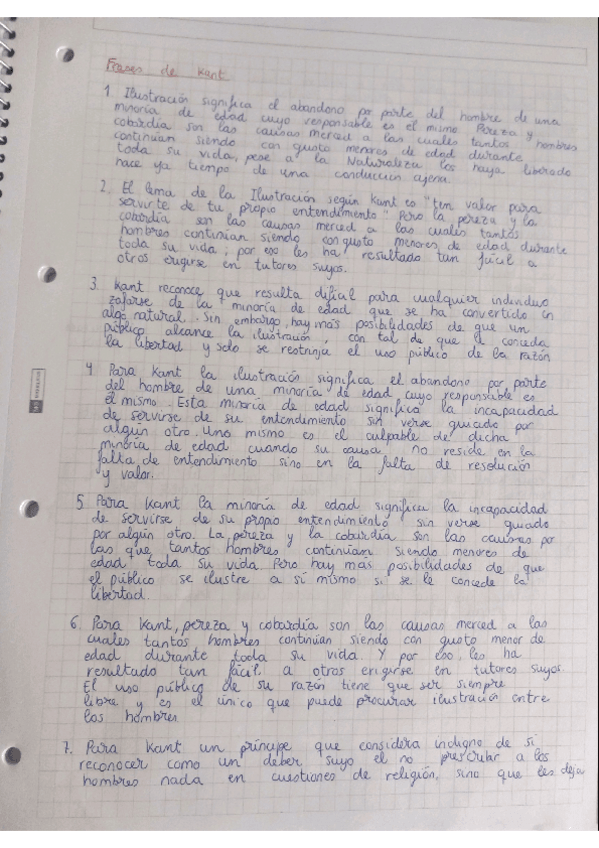 Frases de Kant
1 Ilustración significa el abandono por parte del hombre de una
minoría de edad cuyo responsable es él mismo. Pereza y
cobardía son las causas merced a las cuales tantos hombres
continúan siendo con gusto menores de edad durante
toda su vida, pese a la Naturaleza los haya liberado
hace ya tiempo de una conducción ajena.
2. El lema de la Ilustración según Kant es "ten valor para
servirte de tu propio entendimiento" Pero la pereza y la
cobardía son las causas merced a las cuales tantos
hombres continúan siendo con gusto menores de edad durante
toda su vida; por eso les ha resultado tan fácil a
otros erigirse en tutores suyos.
3. Kant reconoce que resulta difícil para cualquier individuo
zafarse de la minoría de edad que se ha convertido en
algo natural. Sin embargo, hay más posibilidades de que un
público alcance la ilustración, con tal de que le conceda
la libertad y solo se restrinja el uso público de la razón
4 Para Kant la ilustración significa el abandono por parte
del hombre de una minoría de edad cuyo responsable es
él mismo. Esta minoría de edad significa la incapacidad
de servirse de su entendimiento sin verse guiado por
algún otro. Uno mismo es el culpable de dicha
minoría de edad cuando su causa no reside en la
falta de entendimiento sino en la falta de resolución
y valor.
5 Para Kant la minoría de edad significa la incapacidad
de servirse de su propio entendimiento sin verse guiado
por algún otro. La pereza y la cobardía son las causas por
las que tantos hombres continúan siendo menores de
edad toda su vida. Pero hay mas posibilidades de que
el público se ilustre a sí mismo si se le concede la
libertad.
6. Para Kant, pereza y cobardía son las causas merced a las
cuales tantos hombres continúan siendo con gusto menor de
edad durante toda su vida. Y por eso, les ha
resultado tan fácil a otros erigirse en tutores suyos.
El uso público de su razón tiene que ser siempre
libre y es el único que puede procurar ilustración entre
los hombres
7. Para Kant un príncipe que considera indigno de sí
reconocer como un deber suyo el no prescribir a los
hombres nada en cuestiones de religión, sino que les deja